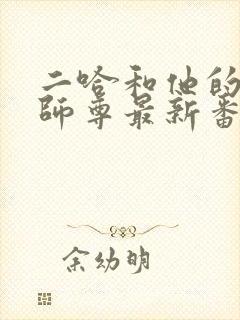 二哈和他的
师尊最新番
余幼明